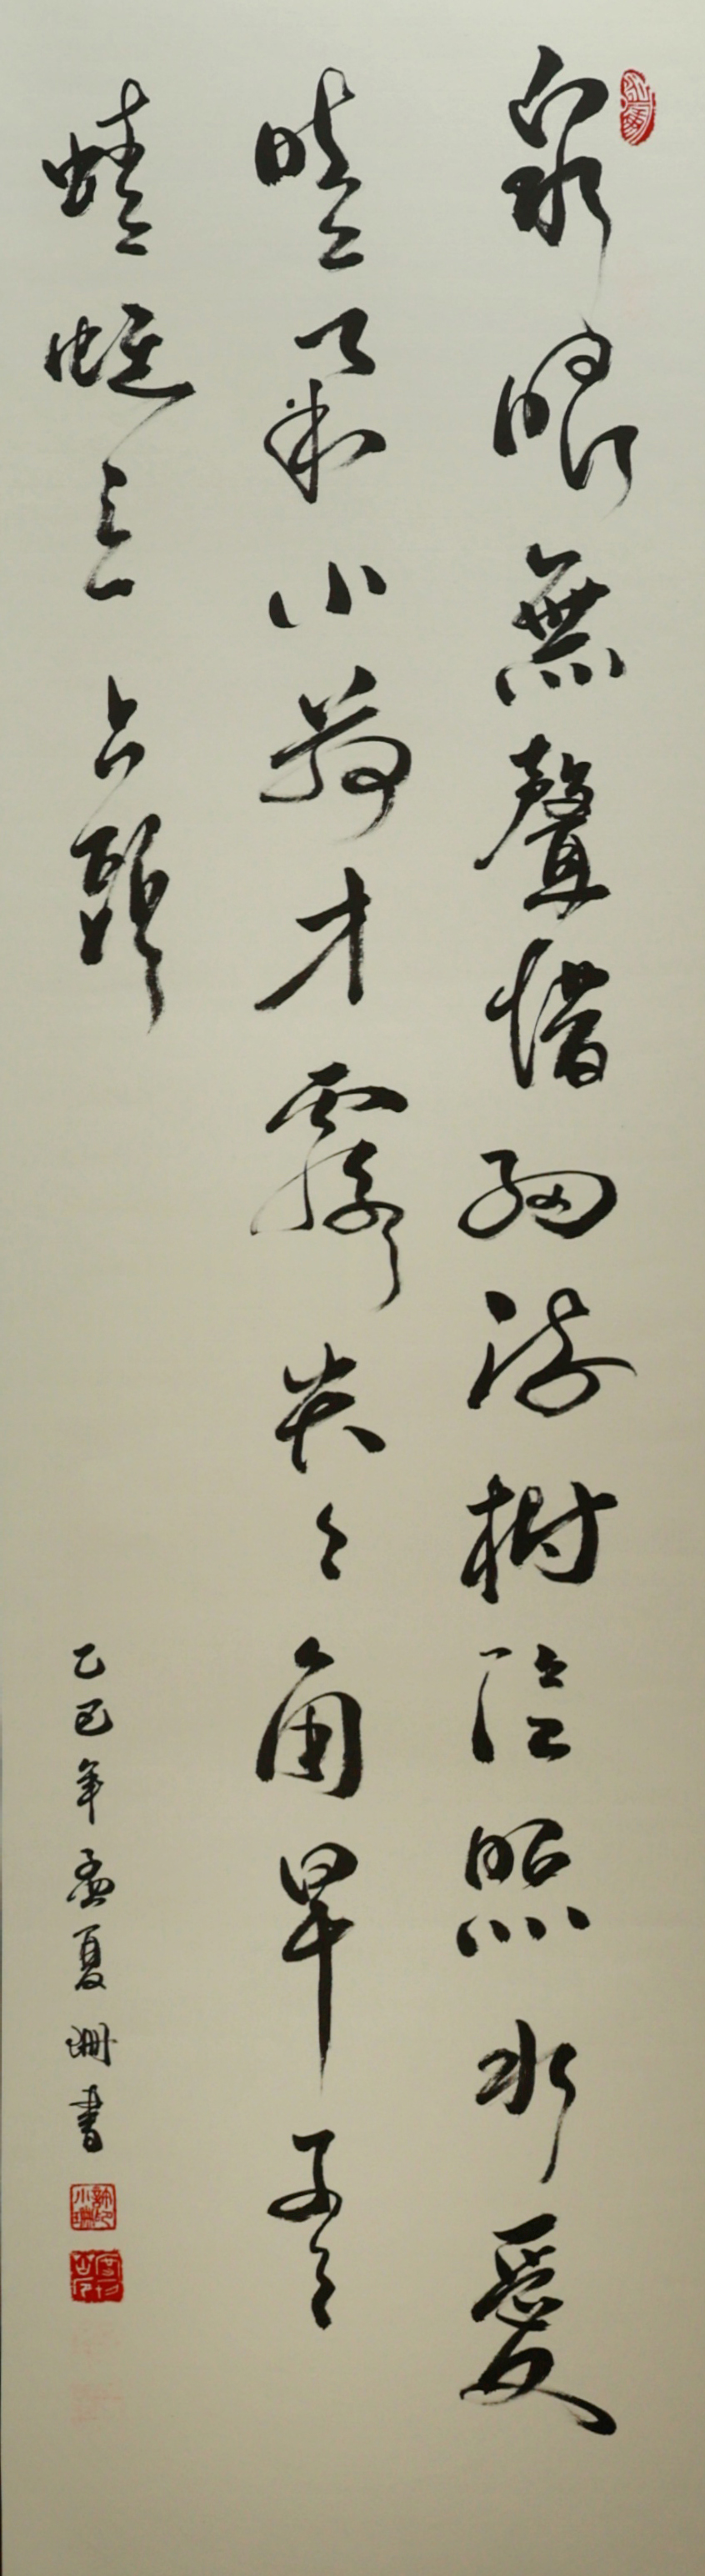 泉眼無聲惜細流樹陰照水愛
晴柔小荷才露尖々角早有
蜻蜓立上頭
乙巳年孟夏珊書